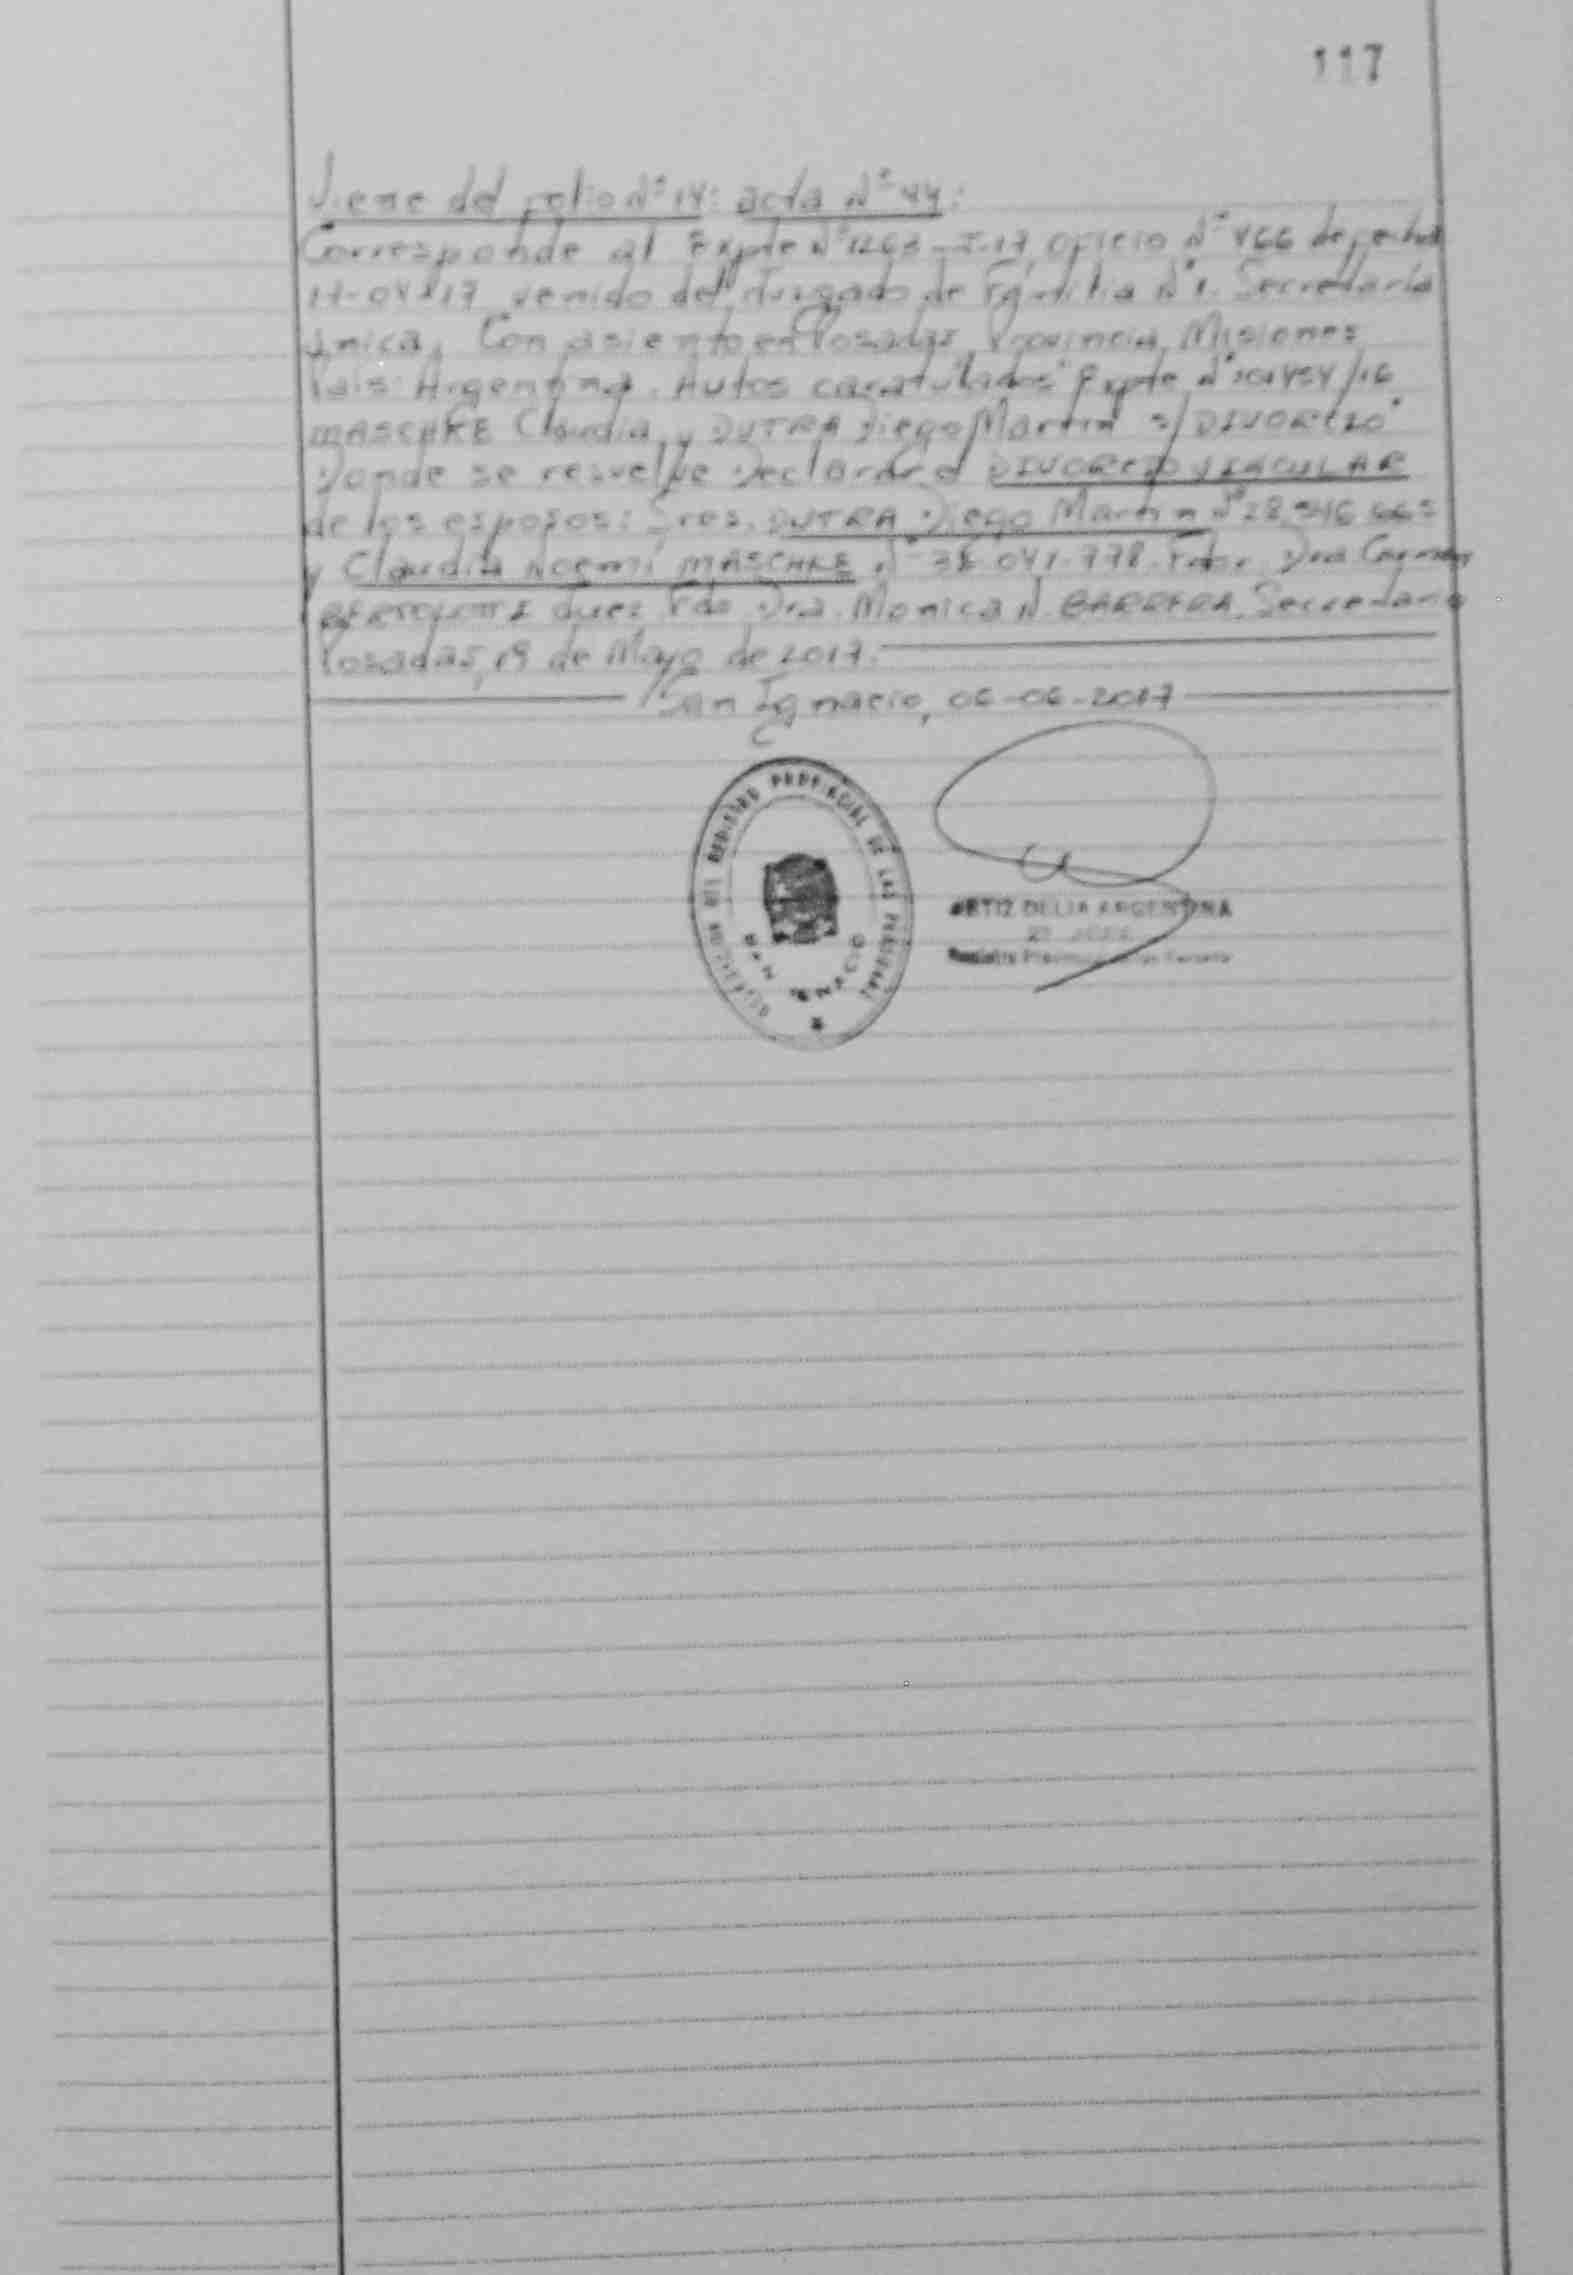 117
Viene del folio Nº 14: acta Nº 44:
Corresponde al Expte Nº 1263-I-17, oficio Nº 466 de fecha
17-04-17 venido del Juzgado de Familia Nº 1. Secretaria
Única, Con asiento en Posadas, Provincia Misiones
País: Argentina. Autos caratulados "Expte Nº 101454/16
MASCHKE Claudia y DUTRA Diego Martin s/ DIVORCIO"
Donde se resuelve Declarar el DIVORCIO VINCULAR
de los esposos: Sres. DUTRA Diego Martin Nº 28.946.665
y Claudia Noemí MASCHKE Nº 041.778. Fdo. Dra Carmen
Juez Fdo Dra. Monica N. BARRERA. Secretaria
Posadas, 19 de Mayo de 2017.
San Ignacio, 06-06-2017
DELEGACION DEL REGISTRO PROVINCIAL DE LAS PERSONAS
SAN IGNACIO
ORTIZ DELIA ARGENTINA
Registro Provincial de las Personas